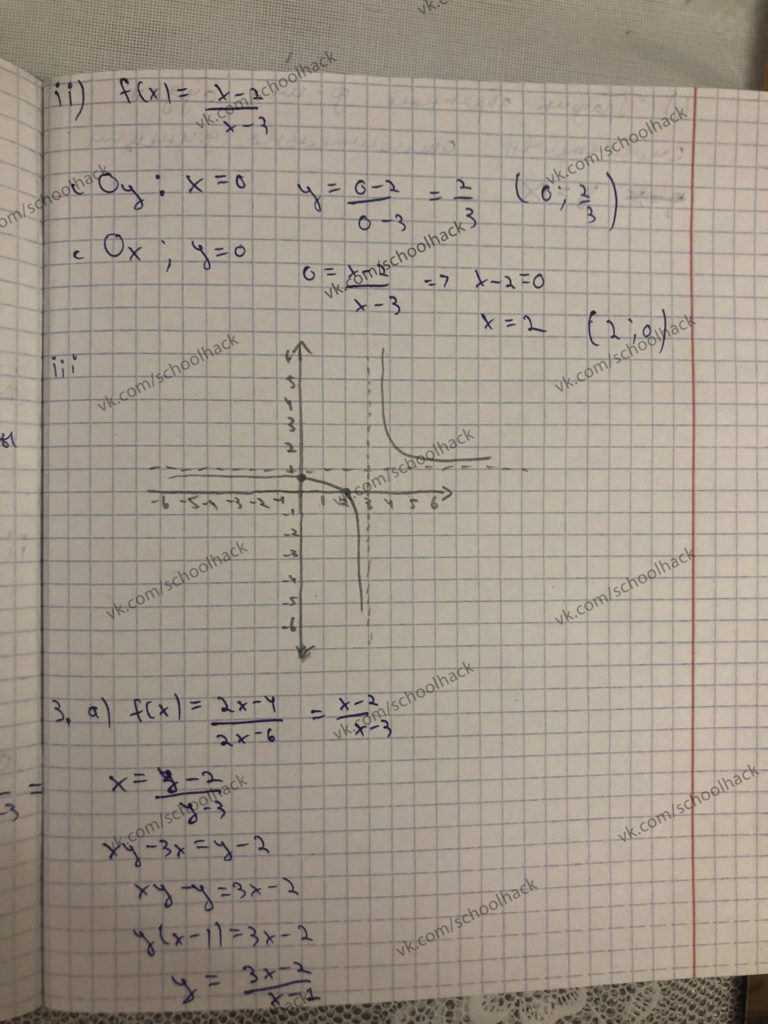 ii) f(x) = x-2 / x-3
с Oy : x=0 y = 0-2 / 0-3 = 2/3 (0; 2/3)
с Ox ; y=0 0 = x-2 / x-3 => x-2=0
x = 2 (2;0)
iii
6
5
4
3
2
1
-6 -5 -4 -3 -2 -1 1 2 3 4 5 6
-1
-2
-3
-4
-5
-6
3. a) f(x) = 2x-4 / 2x-6 = x-2 / x-3
-3 =
x = y-2 / y-3
xy-3x=y-2
xy-y=3x-2
y(x-1)=3x-2
y = 3x-2 / x-1
vk.com/schoolhack
vk.com/schoolhack
vk.com/schoolhack
vk.com/schoolhack
vk.com/schoolhack
vk.com/schoolhack
vk.com/schoolhack
vk.com/schoolhack
vk.com/schoolhack
vk.com/schoolhack
vk.com/schoolhack
vk.com/schoolhack
vk.com/schoolhack